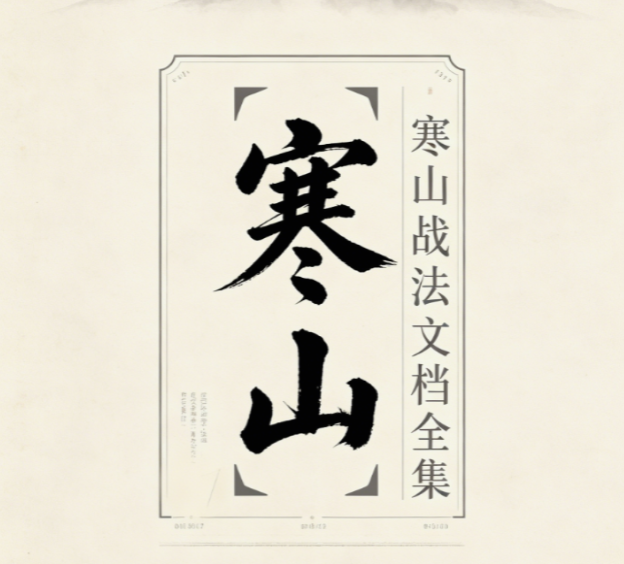 寒山战法文档全集
寒山